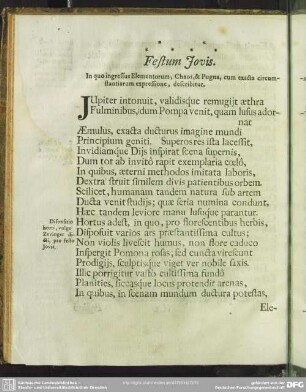 Festum Jovis.
In quo ingressus Elementorum, Chaos, & Pugna, cum exacta circum-
stantiarum expressione, describitur.
JUpiter intonuit, validisque remugijt æthra
Fulminibus, dum Pompa venit, quam lusus ador-
nat
Æmulus, exacta ducturus imagine mundi
Principium geniti. Superos res ista lacessit,
Invidiamque Dijs inspirat scena supernis,
Dum tot ab invito rapit exemplaria cœlo,
In quibus, æterni methodos imitata laboris,
Dextra struit similem divis patientibus orbem
Scilicet, humanam tandem natura sub artem
Ducta venit studijs; quæ seria numina condunt,
Hæc tandem leviore manu lususque parantur.
Hortus adest, in quo, pro florescentibus herbis,
Disposuit varios ars præstantissima cultus;
Non violis livescit humus, non flore caduco
Inspergit Pomona rosas, sed cuncta virescunt
Prodigijs, sculptisque viget ver nobile saxis.
Illic porrigitur vasto cultissima fundo
Planities, siccasque locus protendit arenas,
In quibus, in scenam mundum ductura potestas,
Ele-
Dispositio
horti, vulgo
Zwinger di-
cti, pro festo
Jovis.